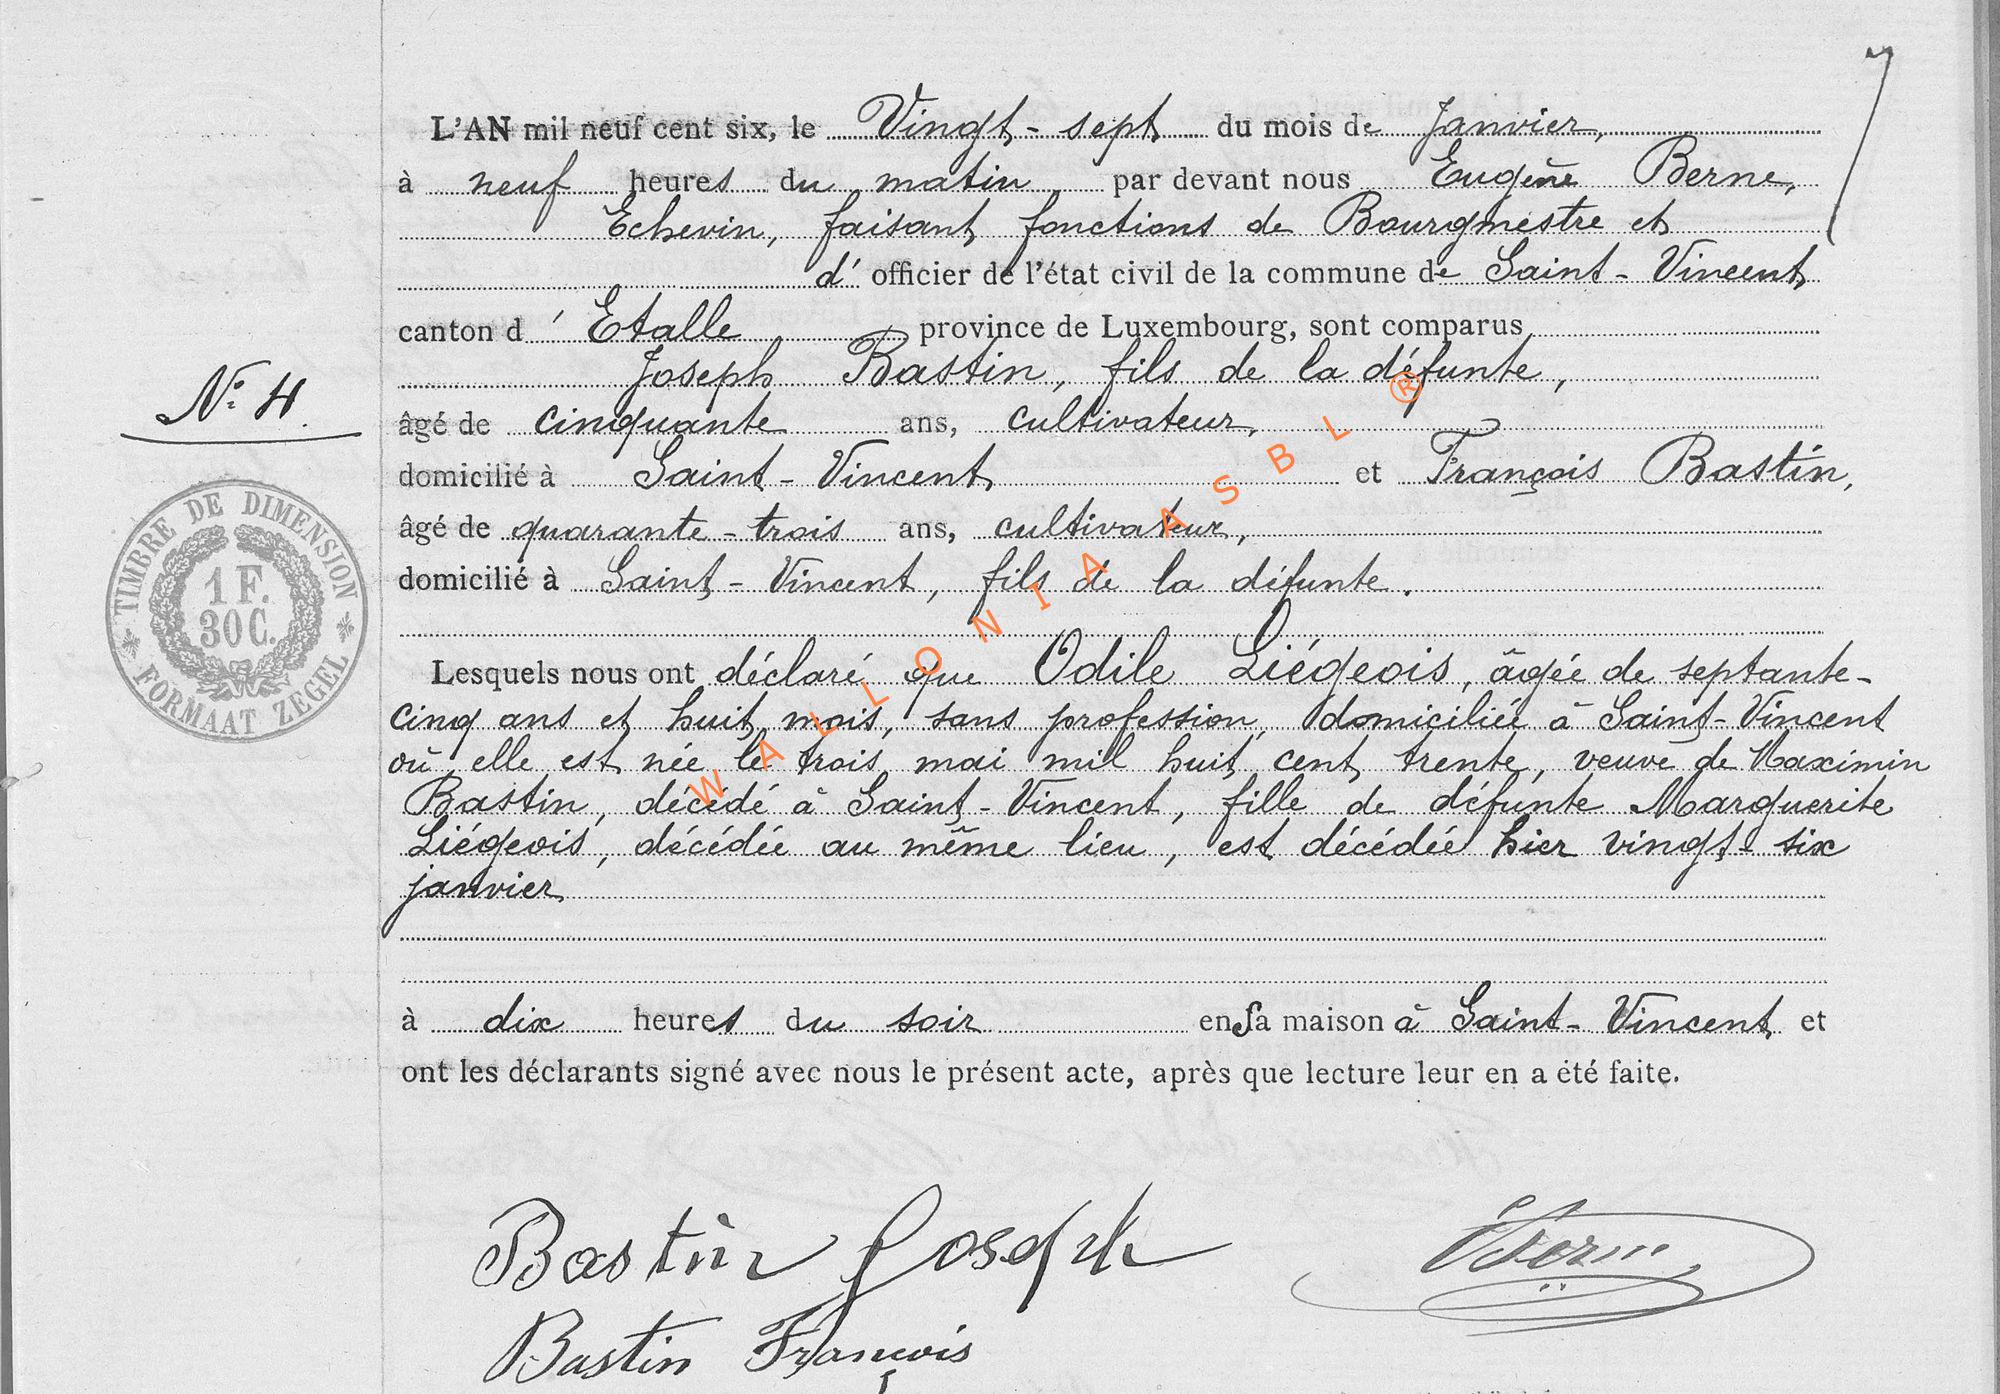 7
L'AN mil neuf cent six, le Vingt-sept du mois de Janvier,
à neuf heures du matin par devant nous Eugène Berne,
Echevin, faisant fonctions de Bourgmestre et
d' officier de l'état civil de la commune de Saint-Vincent
canton d' Etalle province de Luxembourg, sont comparus
Joseph Bastin, fils de la défunte,
N° 4.
âgé de cinquante ans, cultivateur,
domicilié à Saint-Vincent et François Bastin,
âgé de quarante-trois ans, cultivateur,
domicilié à Saint-Vincent, fils de la défunte.
TIMBRE DE DIMENSION
1 F.
30 C.
FORMAAT ZEGEL
Lesquels nous ont déclaré que Odile Liégeois, âgée de septante-
cinq ans et huit mois, sans profession, domiciliée à Saint-Vincent
où elle est née le trois mai mil huit cent trente, veuve de Maximin
Bastin, décédé à Saint-Vincent, fille de défunte Marguerite
Liégeois, décédée au même lieu, est décédée hier vingt-six
janvier
à dix heures du soir en Sa maison à Saint-Vincent et
ont les déclarants signé avec nous le présent acte, après que lecture leur en a été faite.
Bastin Joseph
Berne
Bastin François
WALLONIA ASBL ®